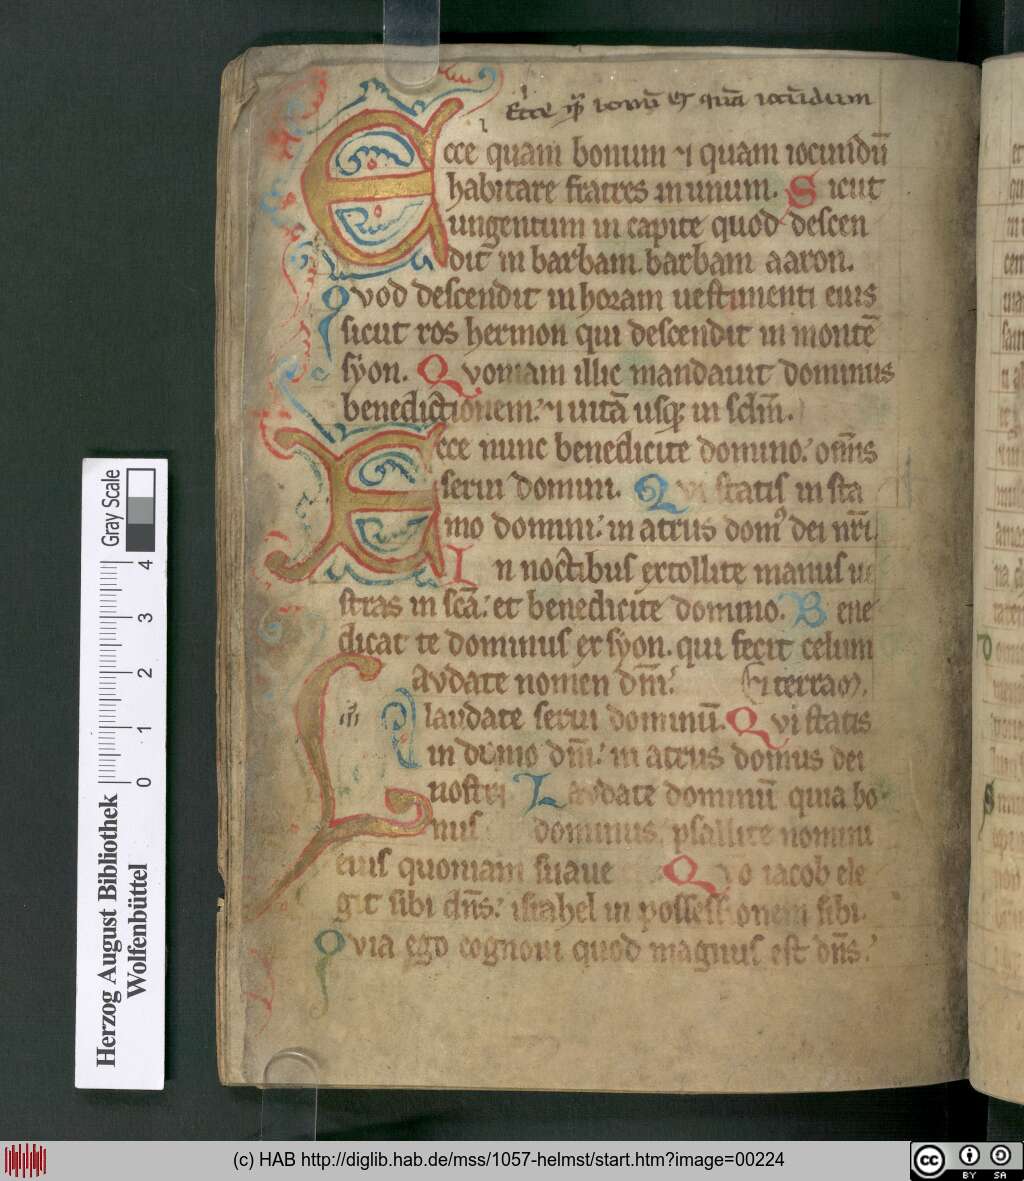 Ecce quam bonum et quam iocundum
Ecce quam bonum ⁊ quam iocundū
habitare fratres in unum. Sicut
ungentum in capite quod descen
dit in barbam. barbam aaron.
Qvod descendit in horam uestimenti eius
sicut ros hermon qui descendit in montē
syon. Qvoniam illic mandauit dominus
benedictionem: ⁊ uitā usq; in sclm̄.
Ecce nunc benedicite domino: om̄s
serui domini. Qvi statis in
domini: in atriis dom9 dei nr̄i
In noctibus extollite manus ue
stras in scā: et benedicite domino. Bene
dicat te dominus ex syon. qui fecit celum
⁊ terram.
Lavdate nomen dm̄:
laudate serui dominū. Qvi statis
in domo dm̄: in atriis domus dei
nostri Lavdate dominū quia bo
nus dominus. psallite nomini
eius quoniam suaue Qvo iacob ele
git sibi dn̄s: israhel in possessionem sibi.
Qvia ego cognoui quod magnus est dn̄s:
Gray Scale
4
3
2
1
0
Herzog August Bibliothek
Wolfenbüttel
(c) HAB http://diglib.hab.de/mss/1057-helmst/start.htm?image=00224
cc
BY SA